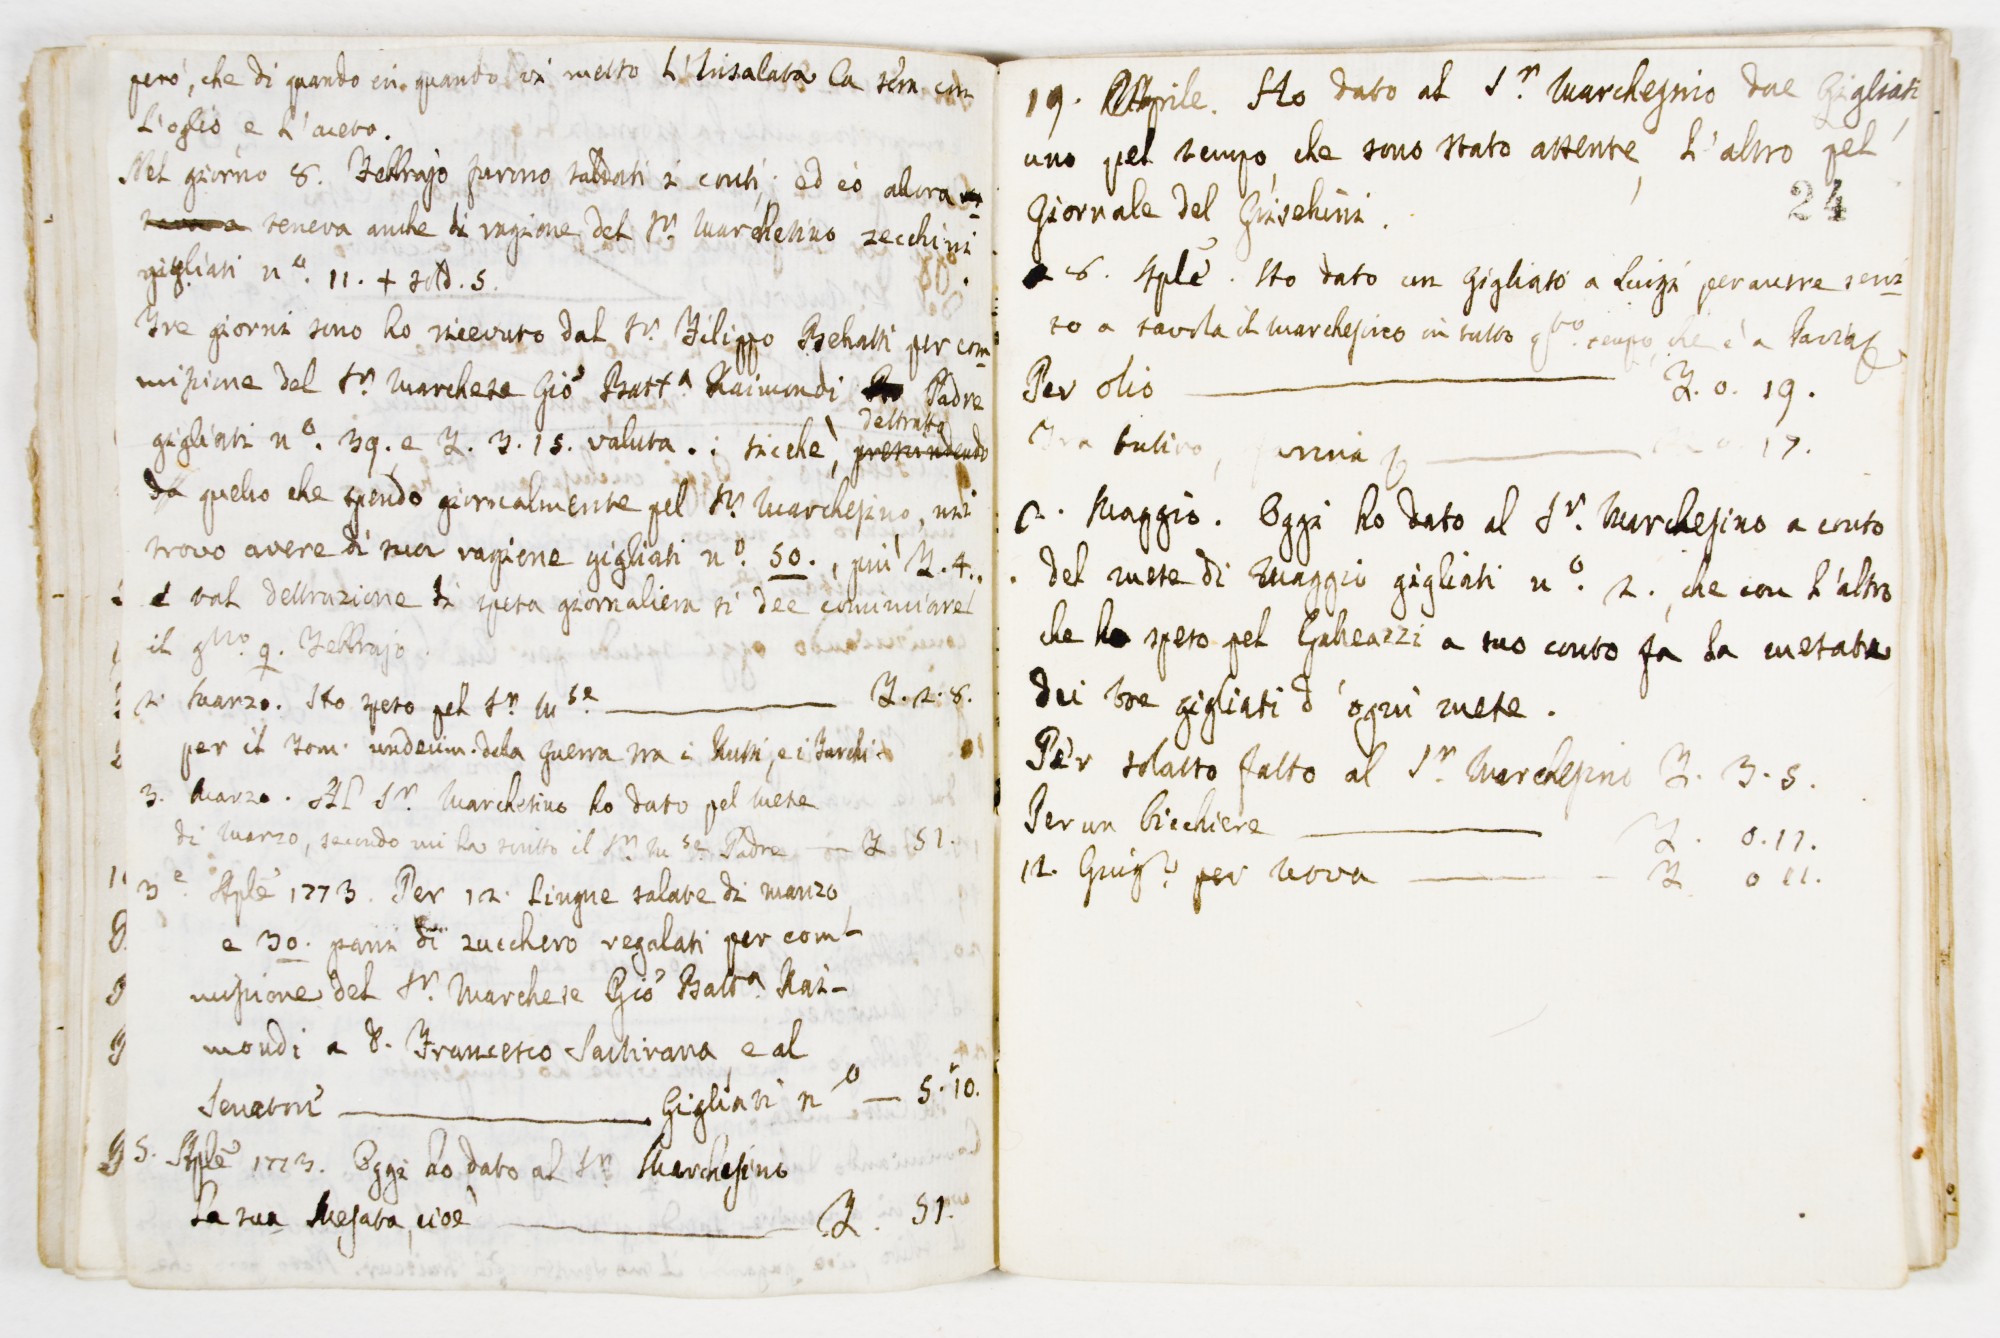 però, che di quando in quando vi metto l'Insalata la sera con
l'oglio, e l'aceto.
Nel giorno 8. Febbrajo furono saldati i conti, ed io allora
teneva anche di ragione del Sr. Marchesino zecchini
gigliati no. 11. + sold. 5.
Tre giorni sono ho ricevuto dal Sr. Filippo per com
missione del Sr. Marchese Gio Batta Raimondi Padre
gigliati no. 39. e L. 3. 15. valuta. : sicchè, detratto
da quello che spendo giornalmente pel Sr. Marchesino, mi
trovo avere di sua ragione gigliati no. 50., più L. 4.,
e val detrazione di spesa giornaliera si dee cominciare
il gno. 9. Febbrajo.
2. Marzo. Ho speso pel Sr. Mse L. 2. 8.
per il Tom. undecim. dela guerra tra i Russi, e i Turchi
3. Marzo. Al Sr. Marchesino ho dato pel Mese
di Marzo, secondo mi ha scritto il Sr. Mse Padre — L 51.
3e. Aple 1773. Per 12. Lingue salate di manzo
e 30. pani di zucchero regalati per com-
missione del Sr. Marchese Gio Batta. Rai-
mondi a D. Francesco Sartirana, e al
Senatore Gigliati no — 5. 10.
5. Aple 1773. Oggi ho dato al Sr. Marchesino
la sua Mesata, cioè L. 51.
19. Aprile. Ho dato al Sr. Marchesino due Gigliati,
uno pel tempo, che sono stato assente, l'altro pel
Giornale del
24
8. Aple. Ho dato un Gigliato a Luigi per avere servi
to a tavola il Marchesino in tutto qto. tempo, che è a Pavia
Per olio L. 0. 19.
Tra butiro, 17.
2. Maggio. Oggi ho dato al Sr. Marchesino a conto
del mese di Maggio gigliati no. 2., che con l'altro
che ho speso pel Galeazzi a suo conto fa la mesata
dei tre gigliati d'ogni mese.
Per solatto fatto al Sr. Marchesino L. 3. 5.
Per un bicchiere L. 0. 11.
12. Giugo per uova L 0 11.